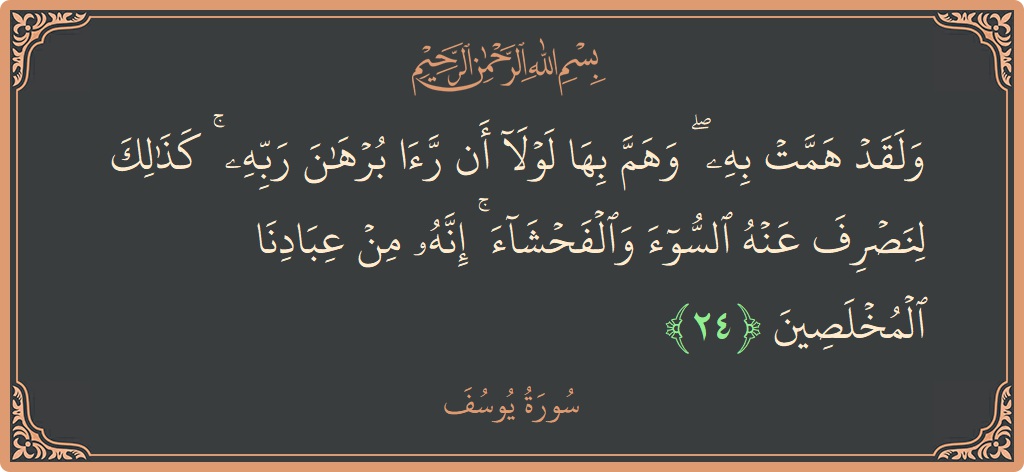 بِسْمِ اللَّهِ الرَّحْمَٰنِ الرَّحِيمِ
وَلَقَدۡ هَمَّتۡ بِهِۦۖ وَهَمَّ بِهَا لَوۡلَآ أَن رَّءَا بُرۡهَٰنَ رَبِّهِۦۚ كَذَٰلِكَ
لِنَصۡرِفَ عَنۡهُ ٱلسُّوٓءَ وَٱلۡفَحۡشَآءَۚ إِنَّهُۥ مِنۡ عِبَادِنَا
ٱلۡمُخۡلَصِينَ ﴿٢٤﴾
سُورَةُ يُوسُفَ